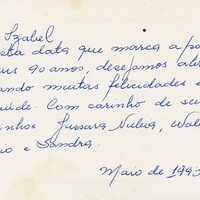 Izabel
esta data que marca a pa
us 90 anos, desejamos
ando muitas felicidades e
aúde. Com carinho de seu
inhos Jussara Nulvia, Wal
io e Sandra.
Maio de 1993